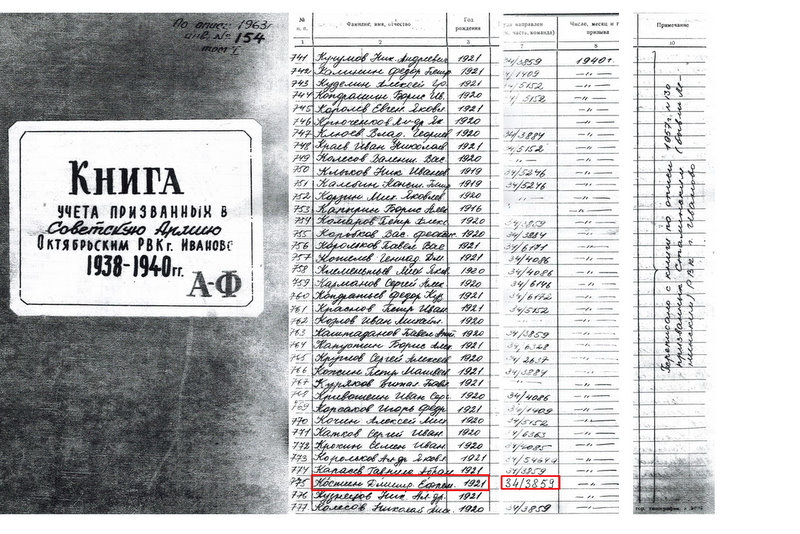 По описи 1963г
инв. № 154
том I
Книга
учета призванных в
Советскую Армию
Октябрьским РВК г. Иваново
1938-1940 гг.
А-Ф
№ п. п. Фамилия, имя, отчество Год рождения направлен (в. часть, команда) Число, месяц и г призыва Примечание
1 2 3 7 8 10
741 Ник. Андреевич 1921 34/3859 1940 г.
742 Калинин Федор Петр. 1921 /1409 —"—
743 Куделин Алексей Гр. 1921 /5152 —"—
744 Кондрашин Борис Ив. 1920 / 5152 —"—
745 Королев Евген Яковл 1921 —"—
746 Ключенков Ал-др Як 1920 —"—
747 Клюев Влад. Георгиев 1920 34/3884 —"—
748 Краев Иван Николаев 1921 /5152 —"—
749 Колесов Валент. Вас. 1920 —"—
750 Клыков Ник Иванов 1919 34/5246 —"—
751 Константин Петр 1919 34/5246 —"—
752 Корзин Мих. Яковлев 1920 —"—
753 Капирин Борис Алек 1916 —"—
754 Комаров Петр Алекс. 1920 /3859 —"—
755 Коробков Вас. 1920 34/3884 —"—
756 Корольков Павел Вас 1921 34/6171 —"—
757 Кошелев Геннад Дм. 1921 34/4086 —"—
758 Клементьев Мих Яков. 1920 34/4086 —"—
759 Карманов Сергей Алек 1921 34/6146 —"—
760 Кондратьев Федор Кур. 1921 34/6172 —"—
761 Краснов Петр Иван. 1921 34/5152 —"—
762 Козлов Иван Михайл. 1920 —"—
763 Каштаданов Павел 1920 34/3859 —"—
764 Капустин Борис Алек 1921 34/6328 —"—
765 Круглов Сергей Алексеев 1920 34/2637 —"—
766 Коксин Петр Матвеев 1921 34/3884 —"—
767 Курряков Виталий Павл 1921 —"—
768 Кривошеин Иван Серг 1920 34/4086 —"—
769 Корсаков Игорь Федр. 1921 34/1409 —"—
770 Кочин Алексей Мих 1920 34/5152 —"—
771 Катков Сергей Иван. 1920 /6363 —"—
772 Крокин Семен Иван 1920 /4085 —"—
773 Корольков Ал-др Яковл 1921 —"—
774 Карасев Гаврил Абрам 1921 34/3859 —"—
775 Костин Дмитр Ефрем. 1921 34/3859 —"—
776 Кузнецов Ник. Ал-др. 1921 —"—
777 Колесов Николай 1920 34/3859 —"—
Переписано с книги по описи 1957г. № 130
призванных Сталинским (бывш. Ле-
нинским) РВК г. Иваново